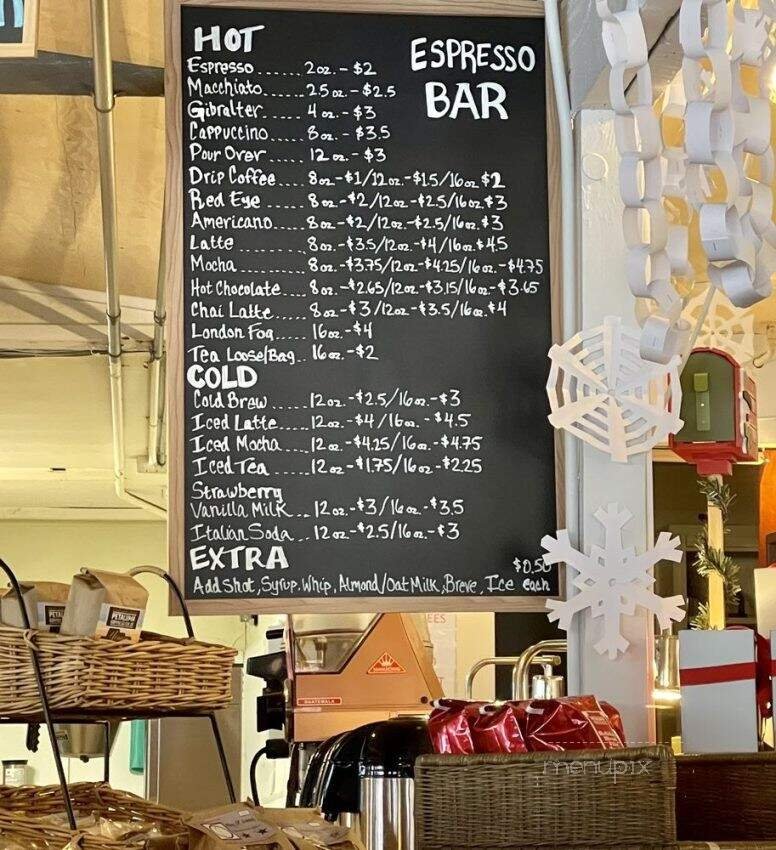 HOT
ESPRESSO
BAR
Espresso......2oz.-$2
Macchiato.....25oz-$2.5
Gibralter.....4oz.-$3
Cappuccino....8oz.-$3.5
Pour Over.....12oz.-$3
Drip Coffee....8oz-$1/12oz.-$1.5/16oz$2
Red Eye.....8oz-$2/12oz-$2.5/16oz.$3
Americano.....8oz-$2/12oz-$2.5/16oz.$3
Latte.........8oz-$3.5/12oz-$4/16oz.$4.5
Mocha.........8oz.-$3.75/12oz-$4.25/16oz.-$4.75
Hot Chocolate....8oz.-$2.65/12oz-$3.15/16oz-$3.65
Chai Latte....8oz-$3/12oz-$3.5/16oz.$4
London Fog.....16oz.-$4
Tea Loose/Bag..16oz.-$2
COLD
Cold Brew.....12oz.-$2.5/16oz.-$3
Iced Latte.....12oz.-$4/16oz.-$4.5
Iced Mocha....12oz-$4.25/16oz.-$4.75
Iced Tea.....12oz-$1.75/16oz-$2.25
Strawberry
Vanilla Milk...12oz.-$3/16oz-$3.5
Italian Soda..12oz-$2.5/16oz.-$3
EXTRA
$0.50
Add Shot, Syrup, Whip, Almond/Oat Milk, Breve, Ice each
PETALUMA
GUATEMALA
EES
menupix